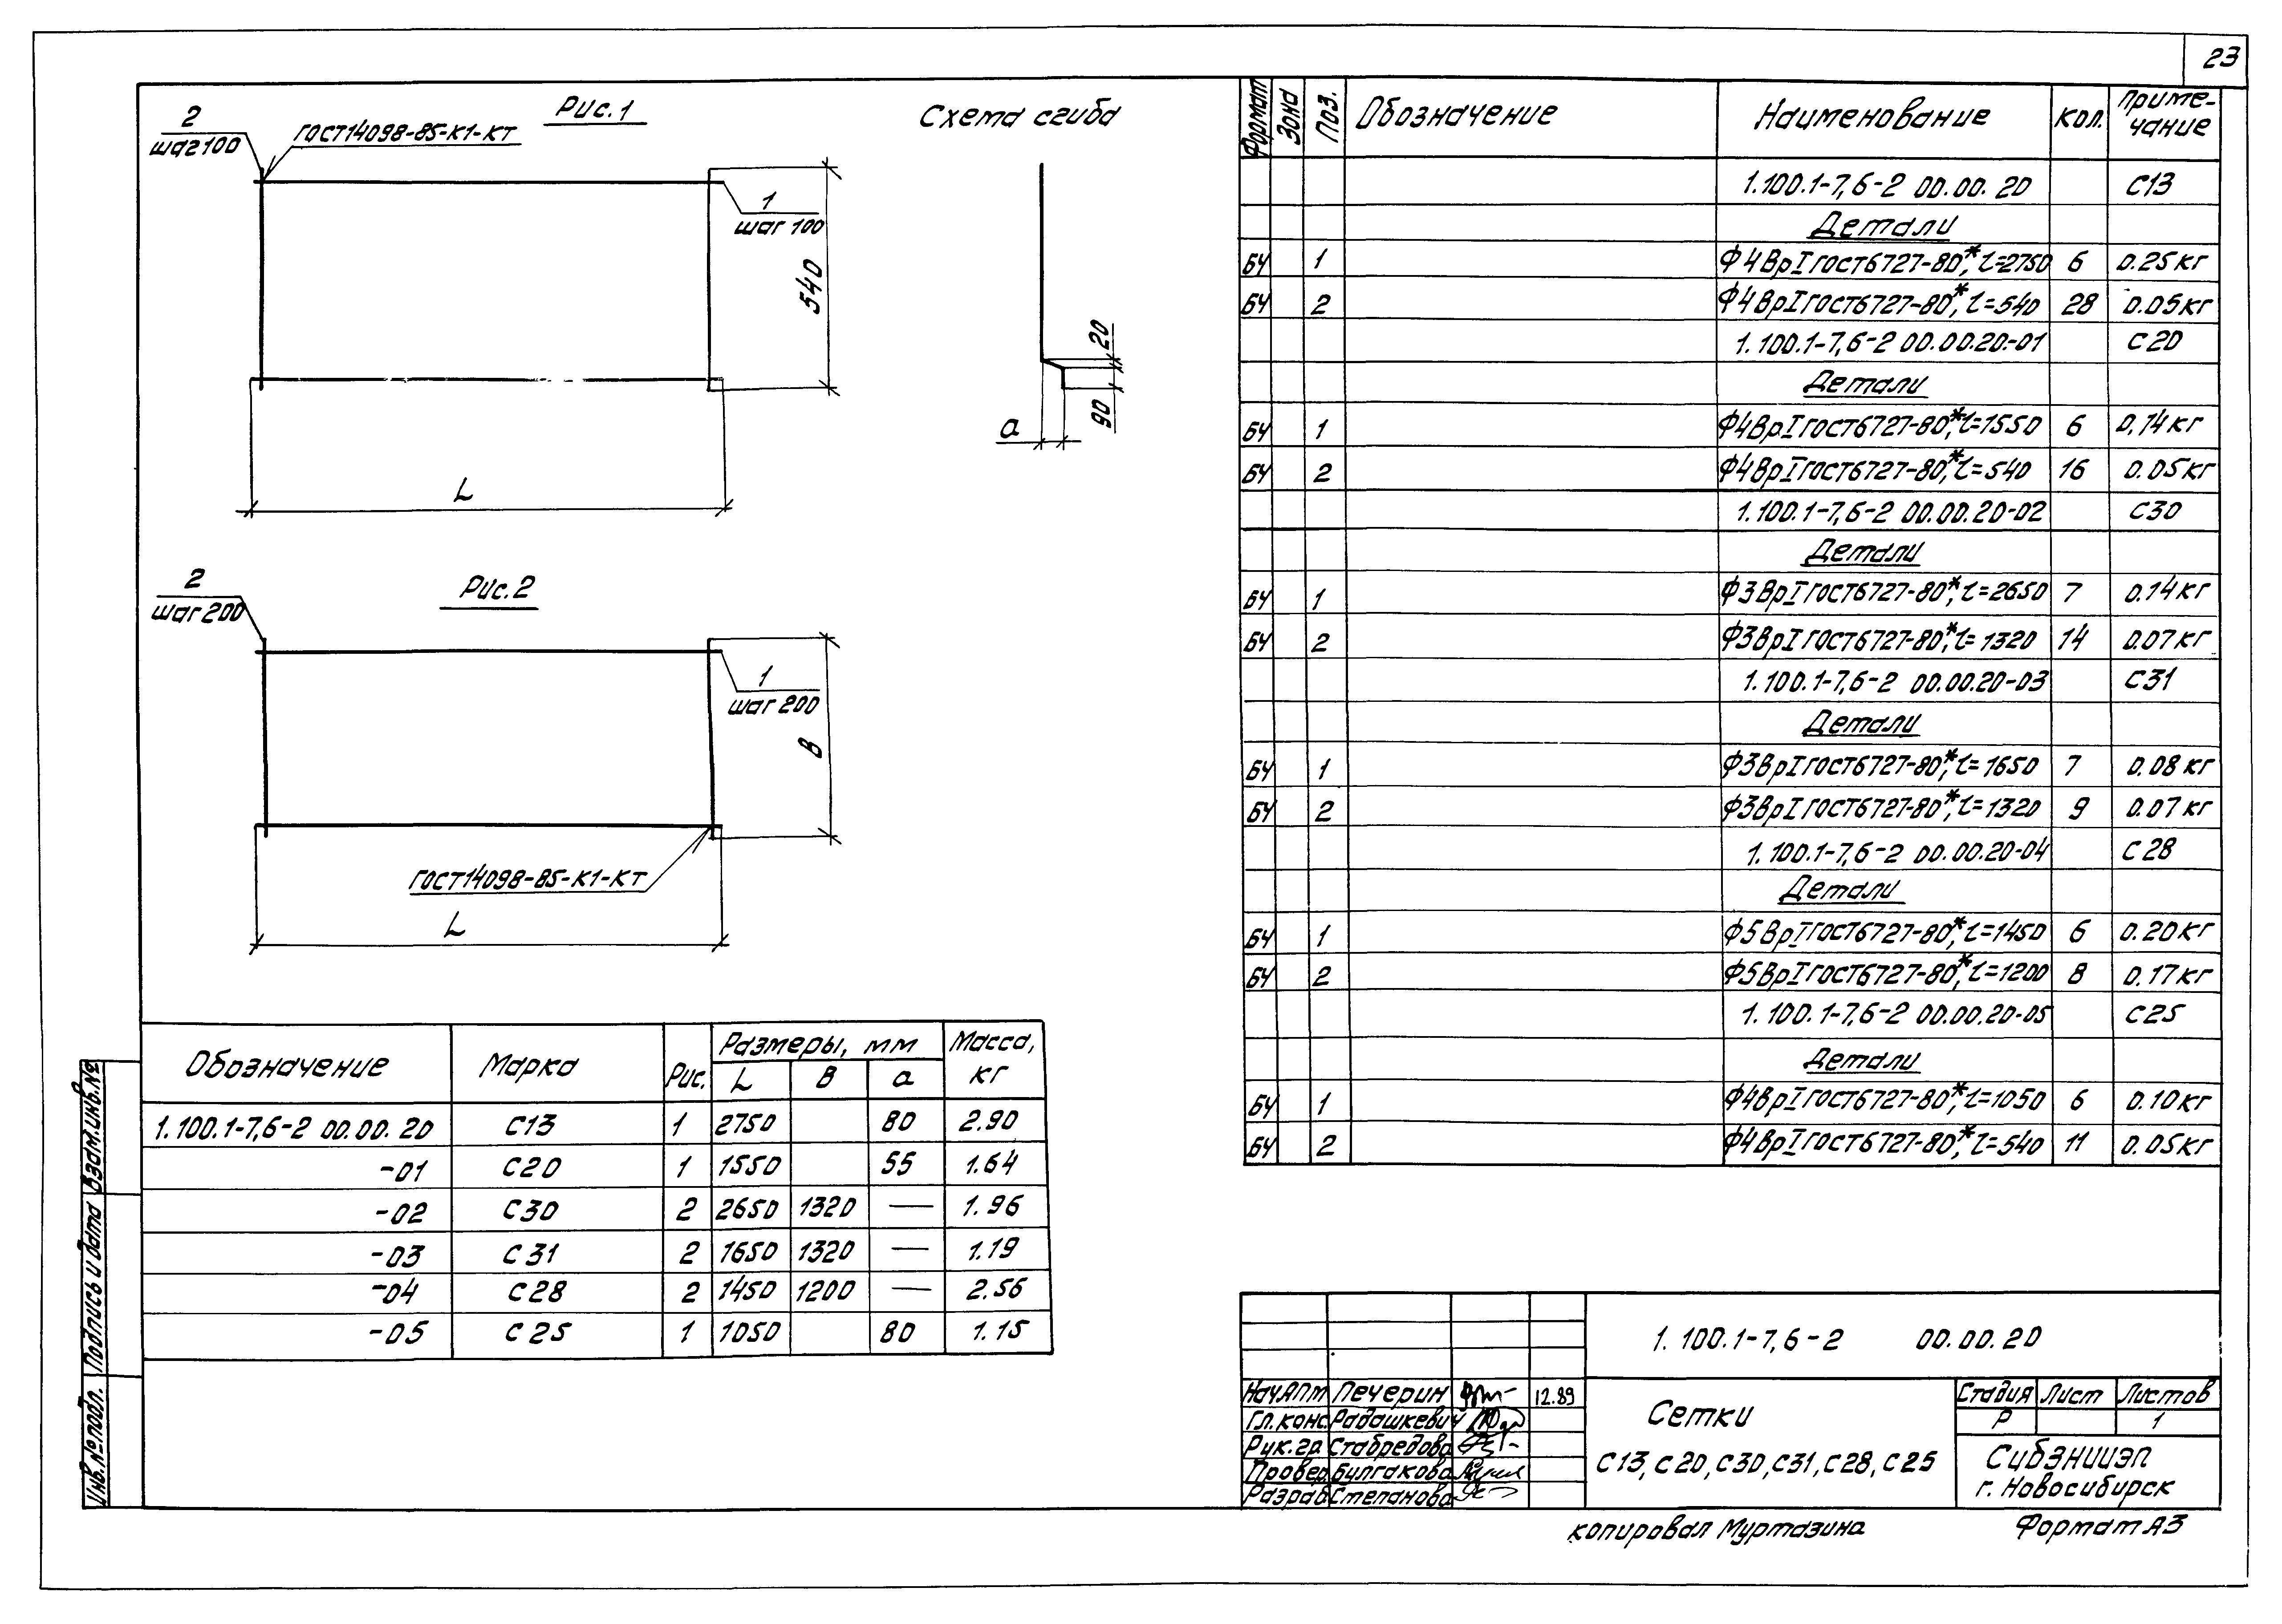 23
Рис.1
2
шаг 100
ГОСТ14098-85-К1-КТ
1
шаг 100
540
L
Схема сгиба
20
90
а
Рис.2
2
шаг 200
1
шаг 200
В
ГОСТ14098-85-К1-КТ
L
Обозначение Марка Рис. Размеры, мм Масса, кг
L В а
1.100.1-7,6-2 00.00.20 С13 1 2750 80 2.90
-01 С20 1 1550 55 1.64
-02 С30 2 2650 1320 — 1.96
-03 С31 2 1650 1320 — 1.19
-04 С28 2 1450 1200 — 2.56
-05 С25 1 1050 80 1.15
Формат Зона Поз. Обозначение Наименование Кол. Приме-
чание
1.100.1-7,6-2 00.00.20 С13
Детали
БЧ 1 Ф4ВрI ГОСТ6727-80*, ℓ=2750 6 0.25кг
БЧ 2 Ф4ВрI ГОСТ6727-80*, ℓ=540 28 0.05кг
1.100.1-7,6-2 00.00.20-01 С20
Детали
БЧ 1 Ф4ВрI ГОСТ6727-80*, ℓ=1550 6 0,14кг
БЧ 2 Ф4ВрI ГОСТ6727-80*, ℓ=540 16 0.05кг
1.100.1-7,6-2 00.00.20-02 С30
Детали
БЧ 1 Ф3ВрI ГОСТ6727-80*, ℓ=2650 7 0.14кг
БЧ 2 Ф3ВрI ГОСТ6727-80*, ℓ=1320 14 0.07кг
1.100.1-7,6-2 00.00.20-03 С31
Детали
БЧ 1 Ф3ВрI ГОСТ6727-80*, ℓ=1650 7 0.08кг
БЧ 2 Ф3ВрI ГОСТ6727-80*, ℓ=1320 9 0.07кг
1.100.1-7,6-2 00.00.20-04 С28
Детали
БЧ 1 Ф5ВрI ГОСТ6727-80*, ℓ=1450 6 0.20кг
БЧ 2 Ф5ВрI ГОСТ6727-80*, ℓ=1200 8 0.17кг
1.100.1-7,6-2 00.00.20-05 С25
Детали
БЧ 1 Ф4ВрI ГОСТ6727-80*, ℓ=1050 6 0.10кг
БЧ 2 Ф4ВрI ГОСТ6727-80*, ℓ=540 11 0.05кг
1.100.1-7,6-2 00.00.20
Нач.АПМ Печерин 12.89
Гл.конс. Радашкевич
Рук.гр. Стабредова
Провер. Булгакова
Разраб. Степанова
Сетки
С13, С20, С30, С31, С28, С25
Стадия Лист Листов
Р 1
СибЗНИИЭП
г. Новосибирск
Копировал Муртазина
Формат А3
Взам.инв.№
Подпись и дата
Инв.№подл.